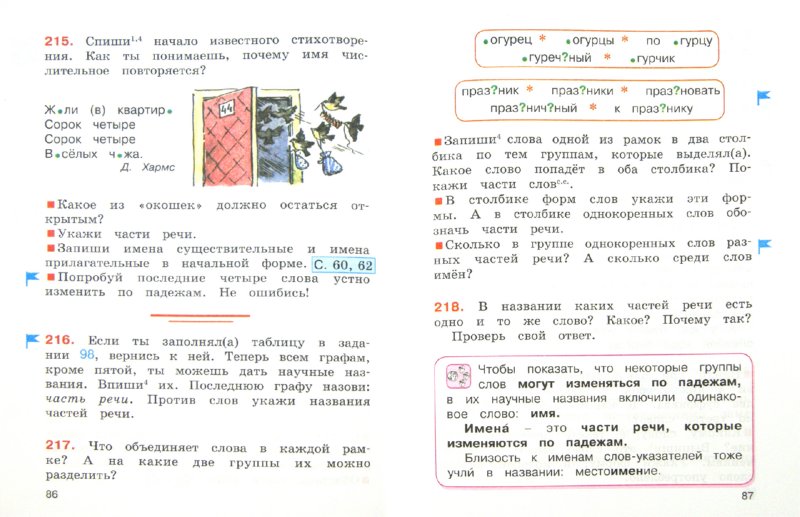 215. Спиши1,4 начало известного стихотворе-
ния. Как ты понимаешь, почему имя чис-
лительное повторяется?
Ж•ли (в) квартир•
Сорок четыре
Сорок четыре
В•сёлых ч•жа.
Д. Хармс
44
■ Какое из «окошек» должно остаться от-
крытым?
■ Укажи части речи.
■ Запиши имена существительные и имена
прилагательные в начальной форме. С. 60, 62
■ Попробуй последние четыре слова устно
изменить по падежам. Не ошибись!
216. Если ты заполнял(а) таблицу в зада-
нии 98, вернись к ней. Теперь всем графам,
кроме пятой, ты можешь дать научные наз-
вания. Впиши4 их. Последнюю графу назови:
часть речи. Против слов укажи названия
частей речи.
217. Что объединяет слова в каждой рам-
ке? А на какие две группы их можно
разделить?
86
•огурец * •огурцы * по •гурцу
•гуреч?ный * •гурчик
праз?ник * праз?ники * праз?новать
праз?нич?ный * к праз?нику
■ Запиши4 слова одной из рамок в два стол-
бика по тем группам, которые выделял(а).
Какое слово попадёт в оба столбика? По-
кажи части словс.е.
■ В столбике форм слов укажи эти фор-
мы. А в столбике однокоренных слов обо-
значь части речи.
■ Сколько в группе однокоренных слов раз-
ных частей речи? А сколько среди слов
имён?
218. В названии каких частей речи есть
одно и то же слово? Какое? Почему так?
Проверь свой ответ.
Чтобы показать, что некоторые группы
слов могут изменяться по падежам,
в их научные названия включили одинако-
вое слово: имя.
Имена́ – это части речи, которые
изменяются по падежам.
Близость к именам слов-указателей тоже
учли́ в названии: местоимение.
87